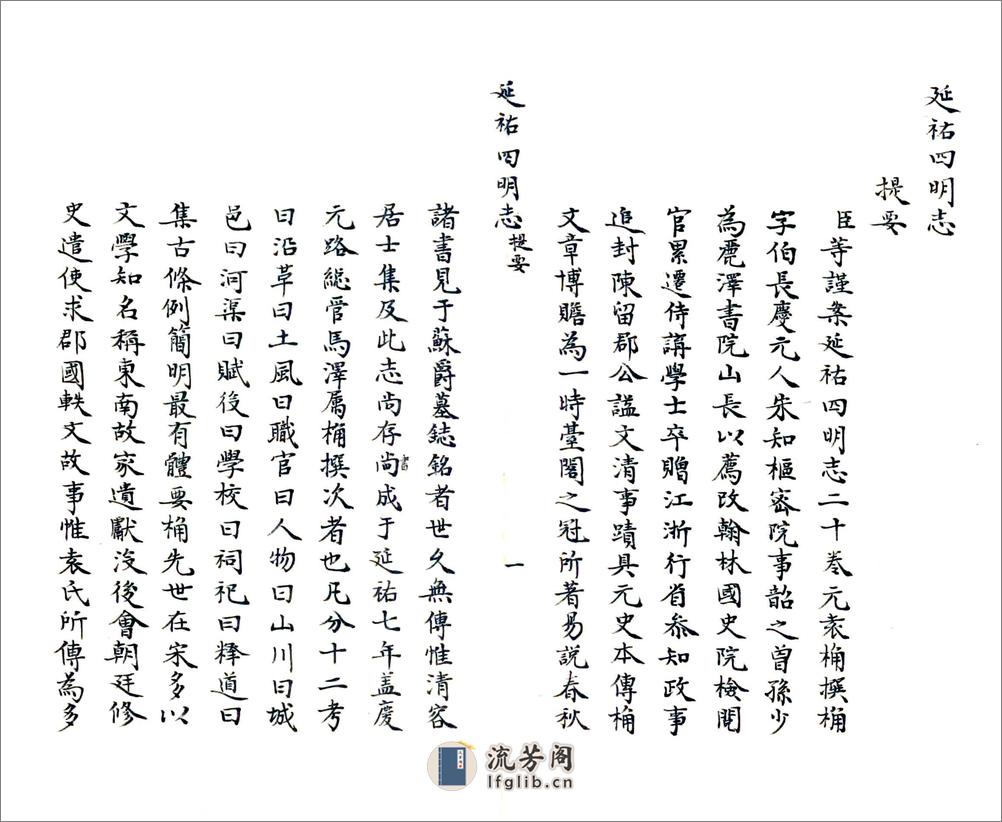 延祐四明志
提要
臣等謹案延祐四明志二十卷元袁桷撰桷
字伯長慶元人朱知樞密院事韶之曾孫少
為麗澤書院山長以薦改翰林國史院檢閱
官累遷侍講學士卒贈江浙行省參知政事
追封陳留郡公謚文清事蹟具元史本傳桷
文章博贍為一時臺閣之冠所著易説春秋
延祐四明志 提要
一
諸書見于蘇爵墓誌銘者世久無傳惟清容
居士集及此志尚存尚書成于延祐七年盖慶
元路總管馬澤屬桷撰次者也凡分十二考
曰沿革曰土風曰職官曰人物曰山川曰城
邑曰河渠曰賦後曰學校曰祠祀曰釋道曰
集古條例簡明最有體要桷先世在宋多以
文學知名稱東南故家遺獻沒後會朝廷修
史遣使求郡國軼文故事惟袁氏所傳為多
流芳阁
lfglib.cn